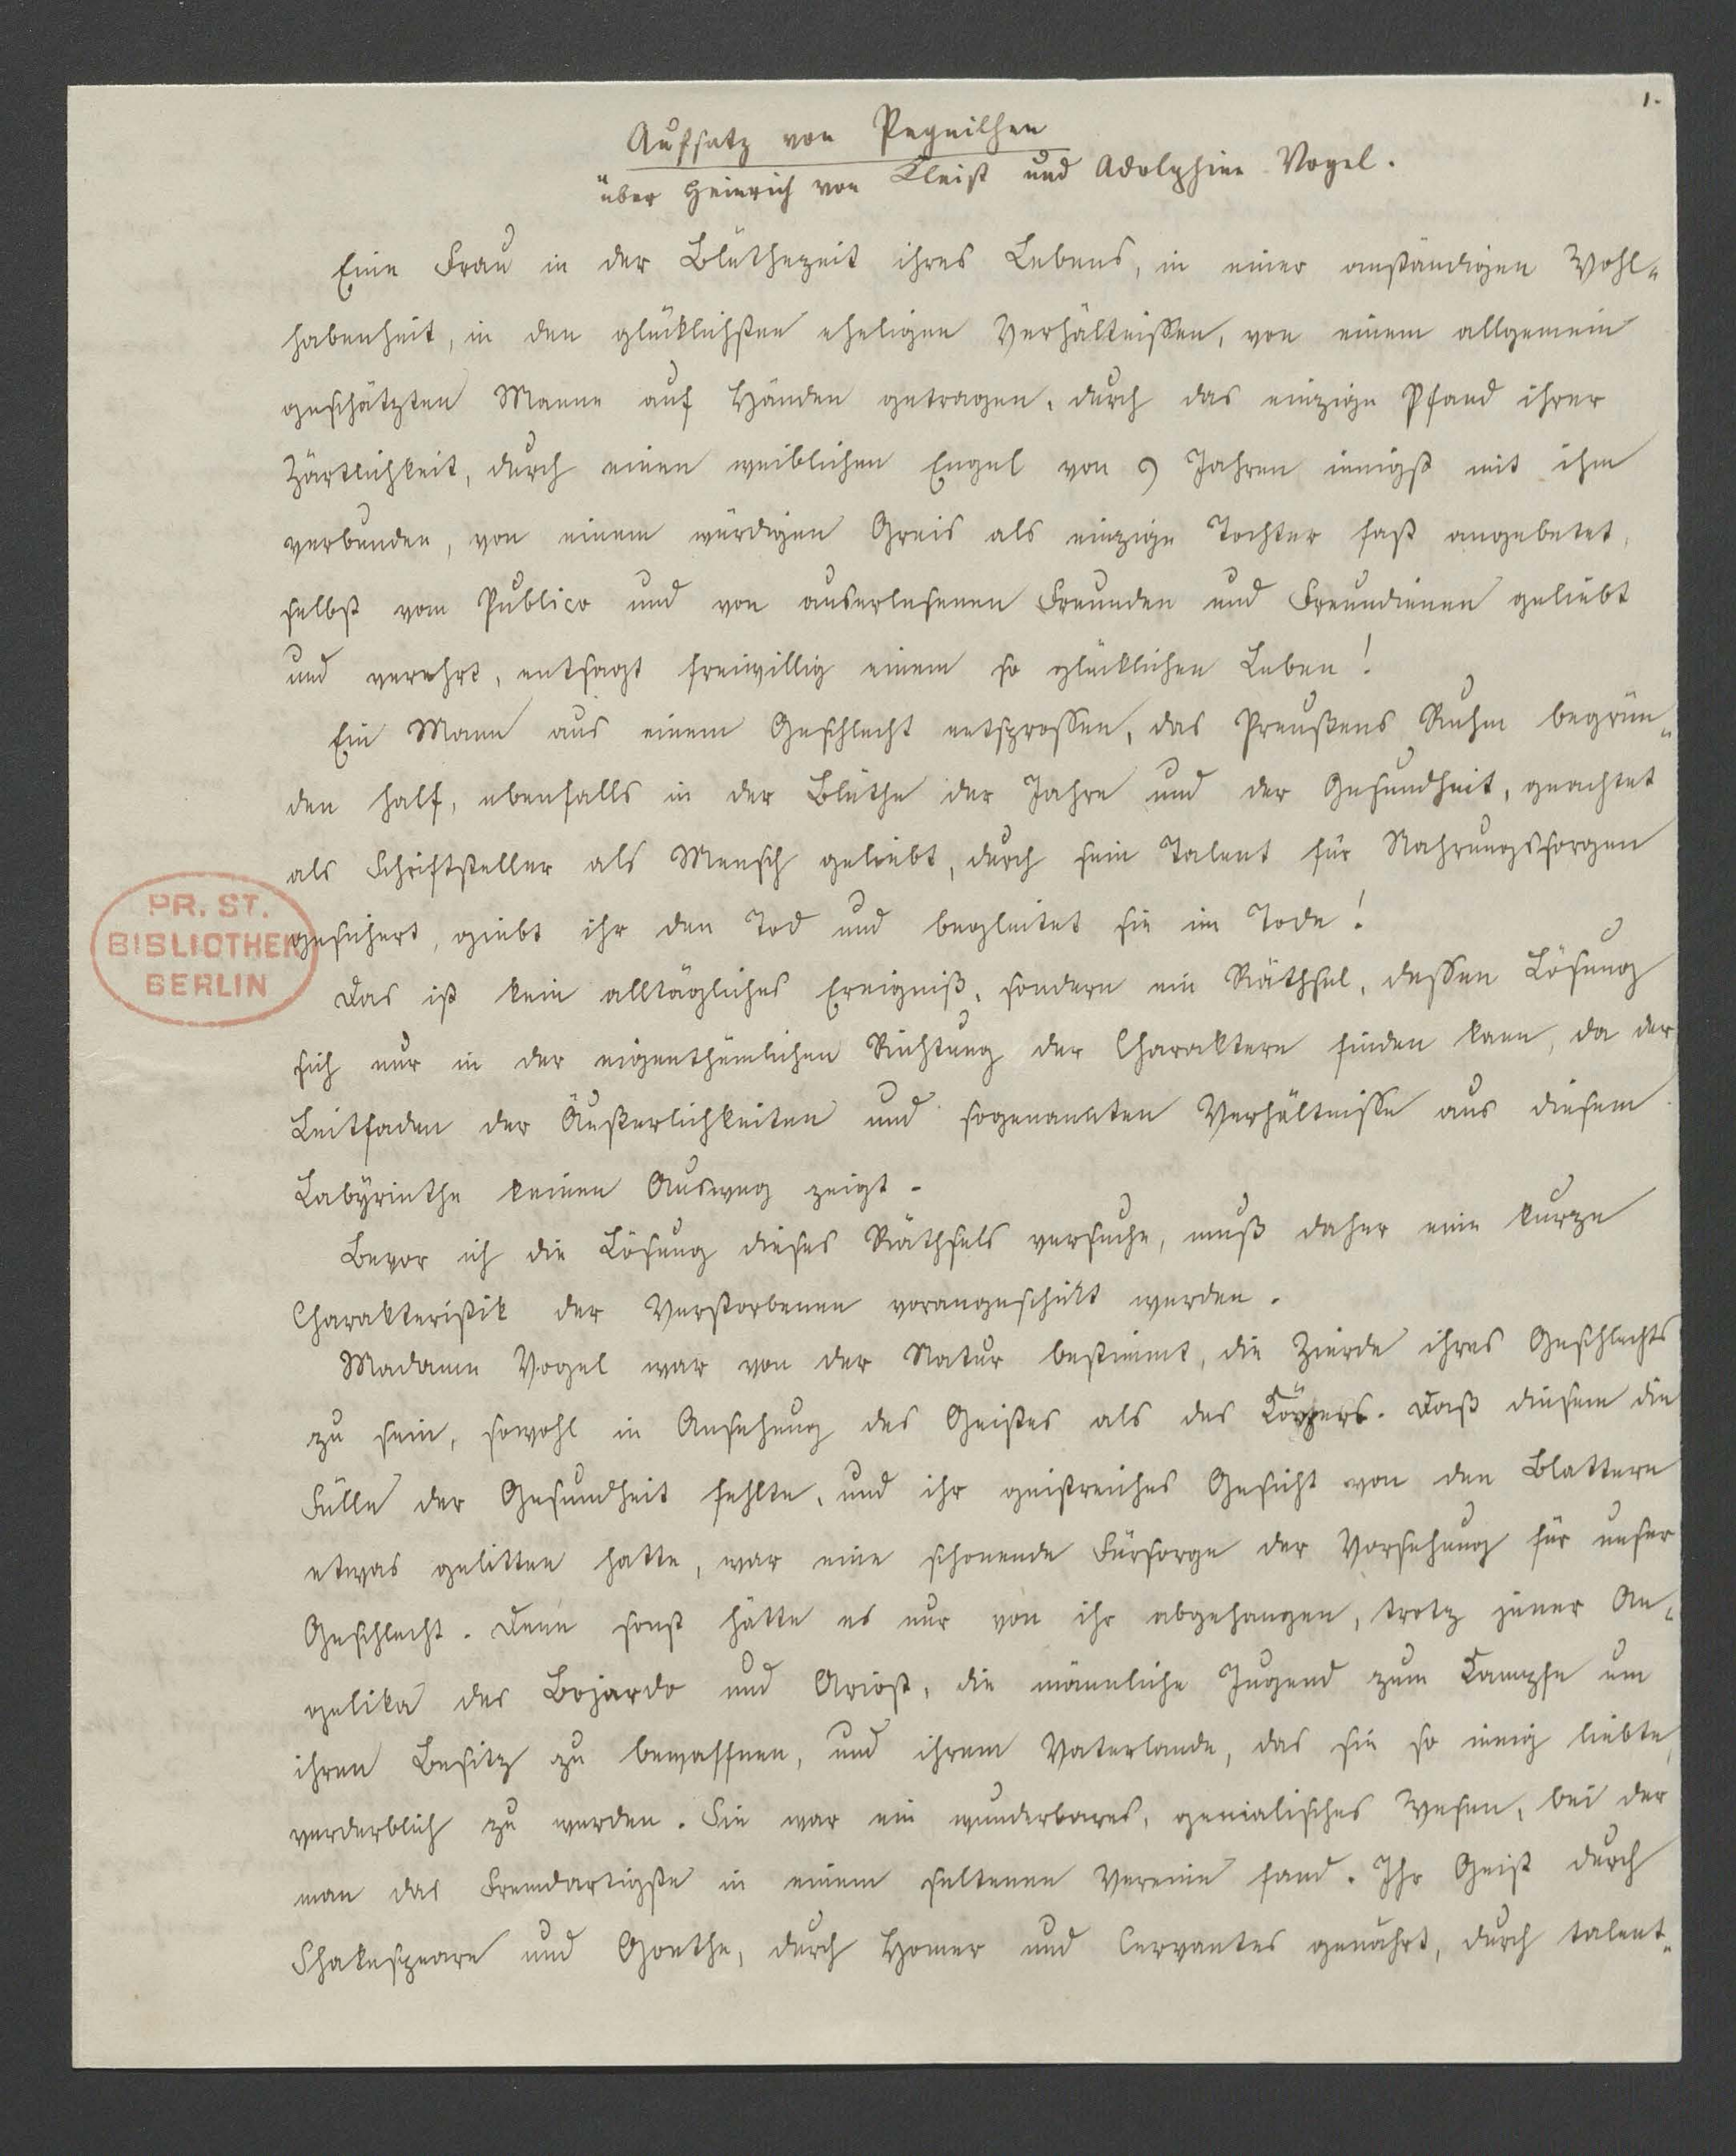 1.
Aufsatz von Peguilhen
über Heinrich von Kleist und Adolphine Vogel.
Eine Frau in der Blüthezeit ihres Lebens, in einer anständigen Wohl-
habenheit, in den glücklichsten eheligen Verhältnissen, von einem allgemein
geschätzten Manne auf Händen getragen, durch das einzige Pfand ihrer
Zärtlichkeit, durch einen weiblichen Engel von 9 Jahren innigst mit ihm
verbunden, von einem würdigen Greis als einzige Tochter fast angebetet,
selbst vom Publico und von auserlesenen Freunden und Freundinnen geliebt
und verehrt, entsagt freiwillig einem so glücklichen Leben!
Ein Mann aus einem Geschlecht entsprossen, das Preußens Ruhm begrün-
den half, ebenfalls in der Blüthe der Jahre und der Gesundheit, geachtet
als Schriftsteller als Mensch geliebt, durch sein Talent für Nahrungssorgen
gesichert, giebt ihr den Tod und begleitet sie im Tode!
PR. ST.
BIBLIOTHEK
BERLIN
Das ist kein alltägliches Ereigniß, sondern ein Räthsel, dessen Lösung
sich nur in der eigenthümlichen Richtung der Charaktere finden kann, da der
Leitfaden der Äußerlichkeiten und sogenannten Verhältnisse aus diesem
Labÿrinthe keinen Ausweg zeigt.
Bevor ich die Lösung dieses Räthsels versuche, muß daher eine kurze
Charakteristik der Verstorbenen vorangeschickt werden.
Madame Vogel war von der Natur bestimmt, die Zierde ihres Geschlechts
zu sein, sowohl in Ansehung des Geistes als des Körpers. Daß diesem die
Fülle der Gesundheit fehlte, und ihr geistreiches Gesicht von den Blattern
etwas gelitten hatte, war eine schonende Fürsorge der Vorsehung für unser
Geschlecht. Denn sonst hätte es nur von ihr abgehangen, trotz jener An-
gelika des Bojardo und Ariost, die männliche Jugend zum Kampfe um
ihren Besitz zu bewaffnen, und ihrem Vaterlande, das sie so innig liebte,
verderblich zu werden. Sie war ein wunderbares, genialisches Wesen, bei der
man das Fremdartigste in einem seltenen Vereine fand. Ihr Geist durch
Shakespeare und Goethe, durch Homer und Cervantes genährt, durch talent-